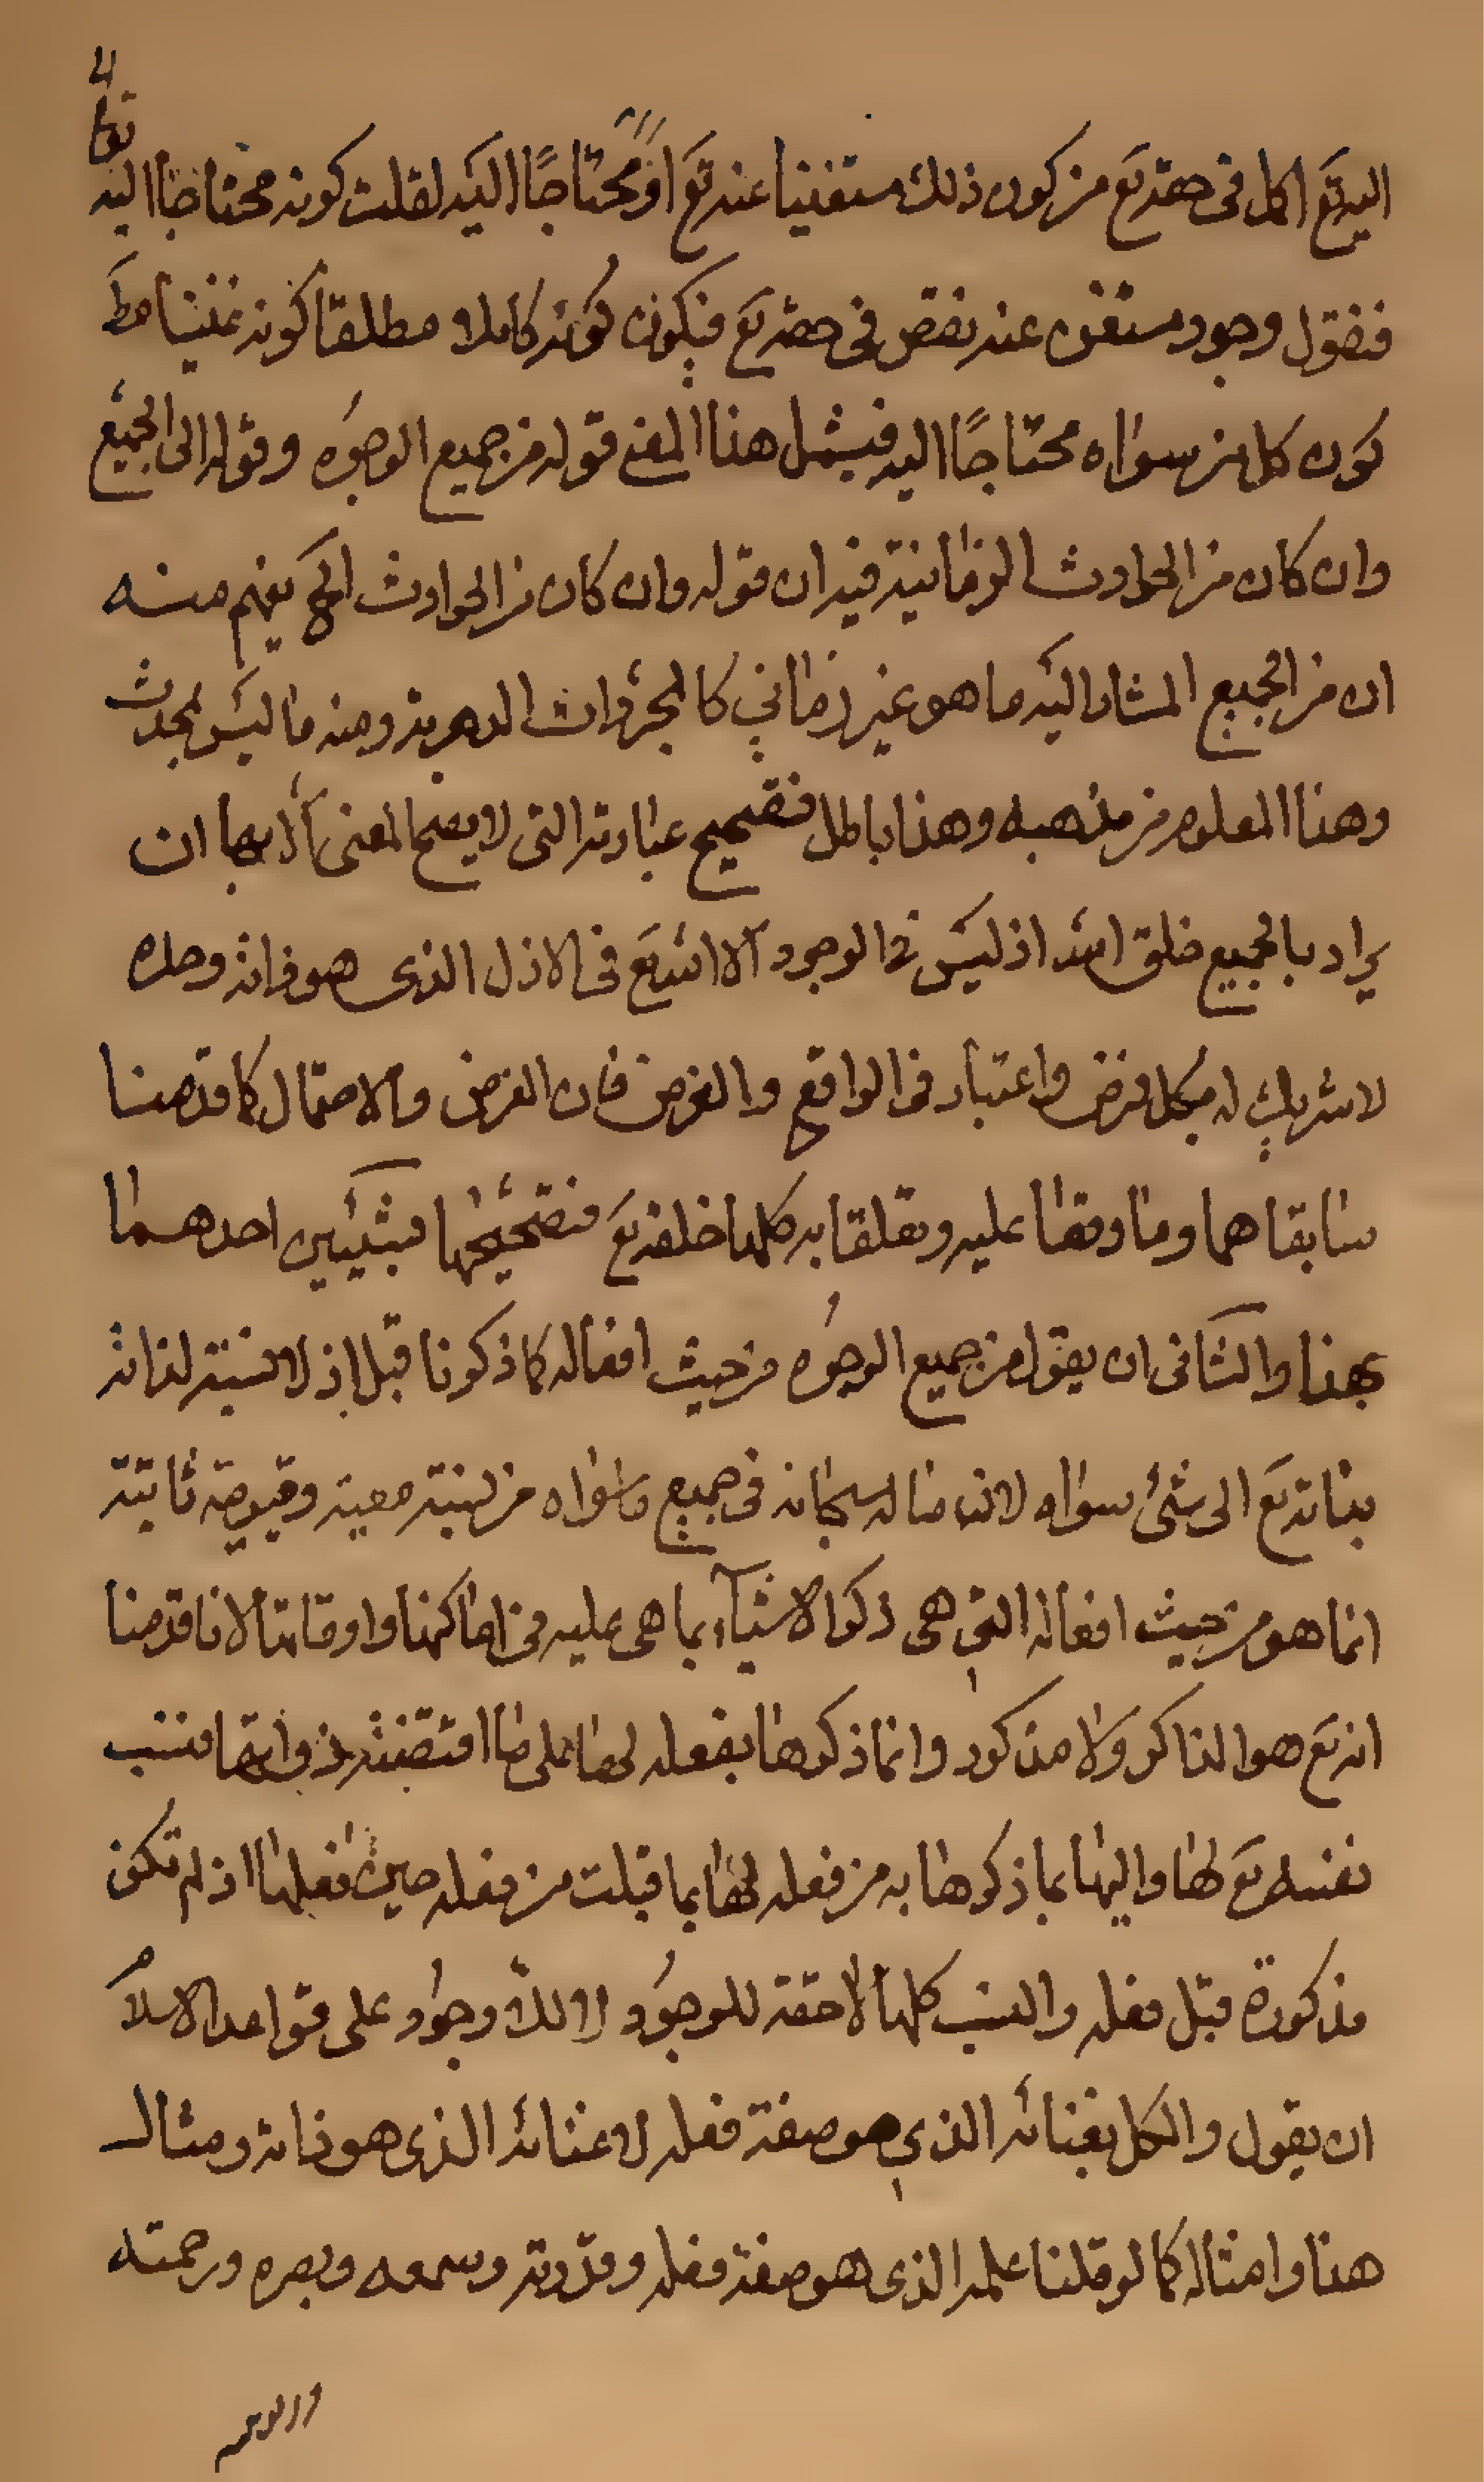 تعالى
اليه تع اكمل فى حقه تع من كون ذلك مستغنيا عنه تع او محتاجًا اليه لقلت كونه محتاجا اليه
فنقول وجود مستغن عنه نقص فى حقه تع فيكون كونه كاملا مطلقا كونه غنيا مط
كون كل من سواه محتاجًا اليه فيشمل هذا المعنى قوله من جميع الوجوه وقوله الى الجميع
وان كان من الحوادث الزمانية فيه ان قوله وان كان من الحوادث الخ يفهم منه
ان من الجميع المشار اليه ما هو غير زمانى كالمجردات الدهرية ومنه ما ليس بمحدث
وهذا المعلوم من مذهبه وهذا باطل فتصحيح عبارته التى لا يصح المعنى الا بها ان
يراد بالجميع خلق الله اذ ليس فى الوجود الا الله تع فى الازل الذى هو ذاته وحده
لا شريك له بكل فرض واعتبار فى الواقع والفرض فان الفرض والاحتمال كما قدمنا
سابقا هما وما وقعا عليه وتعلقا به كلها خلقه تع فتصحيحها بشيئين احدهما
بهذا والثانى ان يقول من جميع الوجوه من حيث افعاله كما ذكرنا قبل اذ لا نسبة لذاته
بذاته تع الى شئ سواه لان ما له سبحانه فى جميع ما سواه من نسبة معية وقيومية ثابتة
انما هو من حيث افعاله التى هى ذكر الاشياء بما هى عليه فى اماكنها واوقاتها لانا قدمنا
انه تع هو الذاكر ولا مذكور وانما ذكرها بفعله لها على ما اقتضته ذواتها فنسب
نفسه تع لها واليها بما ذكرها به من فعله لها بما قبلت من فعله حين فعلها اذ لم تكن
مذكورة قبل فعله والنسب كلها لاحقة للوجود لا للاوجود على قواعد الاسلام
ان يقول والكل بغنائه الذى هو صفة فعله لا غنائه الذى هو ذاته ومثال
هذا وامثاله كما لو قلنا علمه الذى هو صفة فعله وقدرته وسمعه وبصره ورحمته